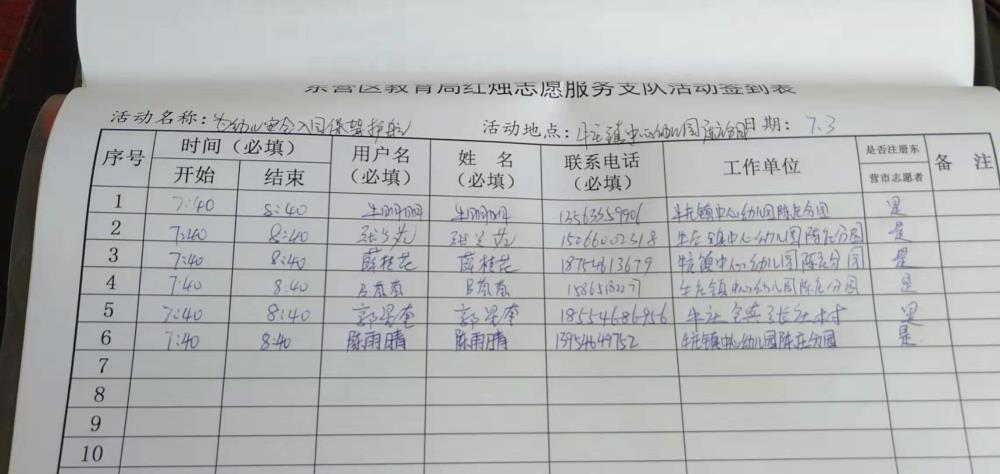 东营区教育局红烛志愿服务支队活动签到表
活动名称：为幼儿安全入园保驾护航 活动地点：牛庄镇中心幼儿园陈庄分园 日期：7.3
序号 时间（必填） 用户名（必填） 姓名（必填） 联系电话（必填） 工作单位 是否注册东营市志愿者 备注
开始 结束
1 7:40 8:40 13563559906 牛庄镇中心幼儿园陈庄分园 是
2 7:40 8:40 张兰芝 张兰芝 15066002318 牛庄镇中心幼儿园陈庄分园 是
3 7:40 8:40 薛桂花 薛桂花 18754613679 牛庄镇中心幼儿园陈庄分园 是
4 7:40 8:40 牛庄镇中心幼儿园陈庄分园 是
5 7:40 8:40 18554686956 是
6 7:40 8:40 陈雨晴 陈雨晴 13954649752 牛庄镇中心幼儿园陈庄分园 是
7
8
9
10